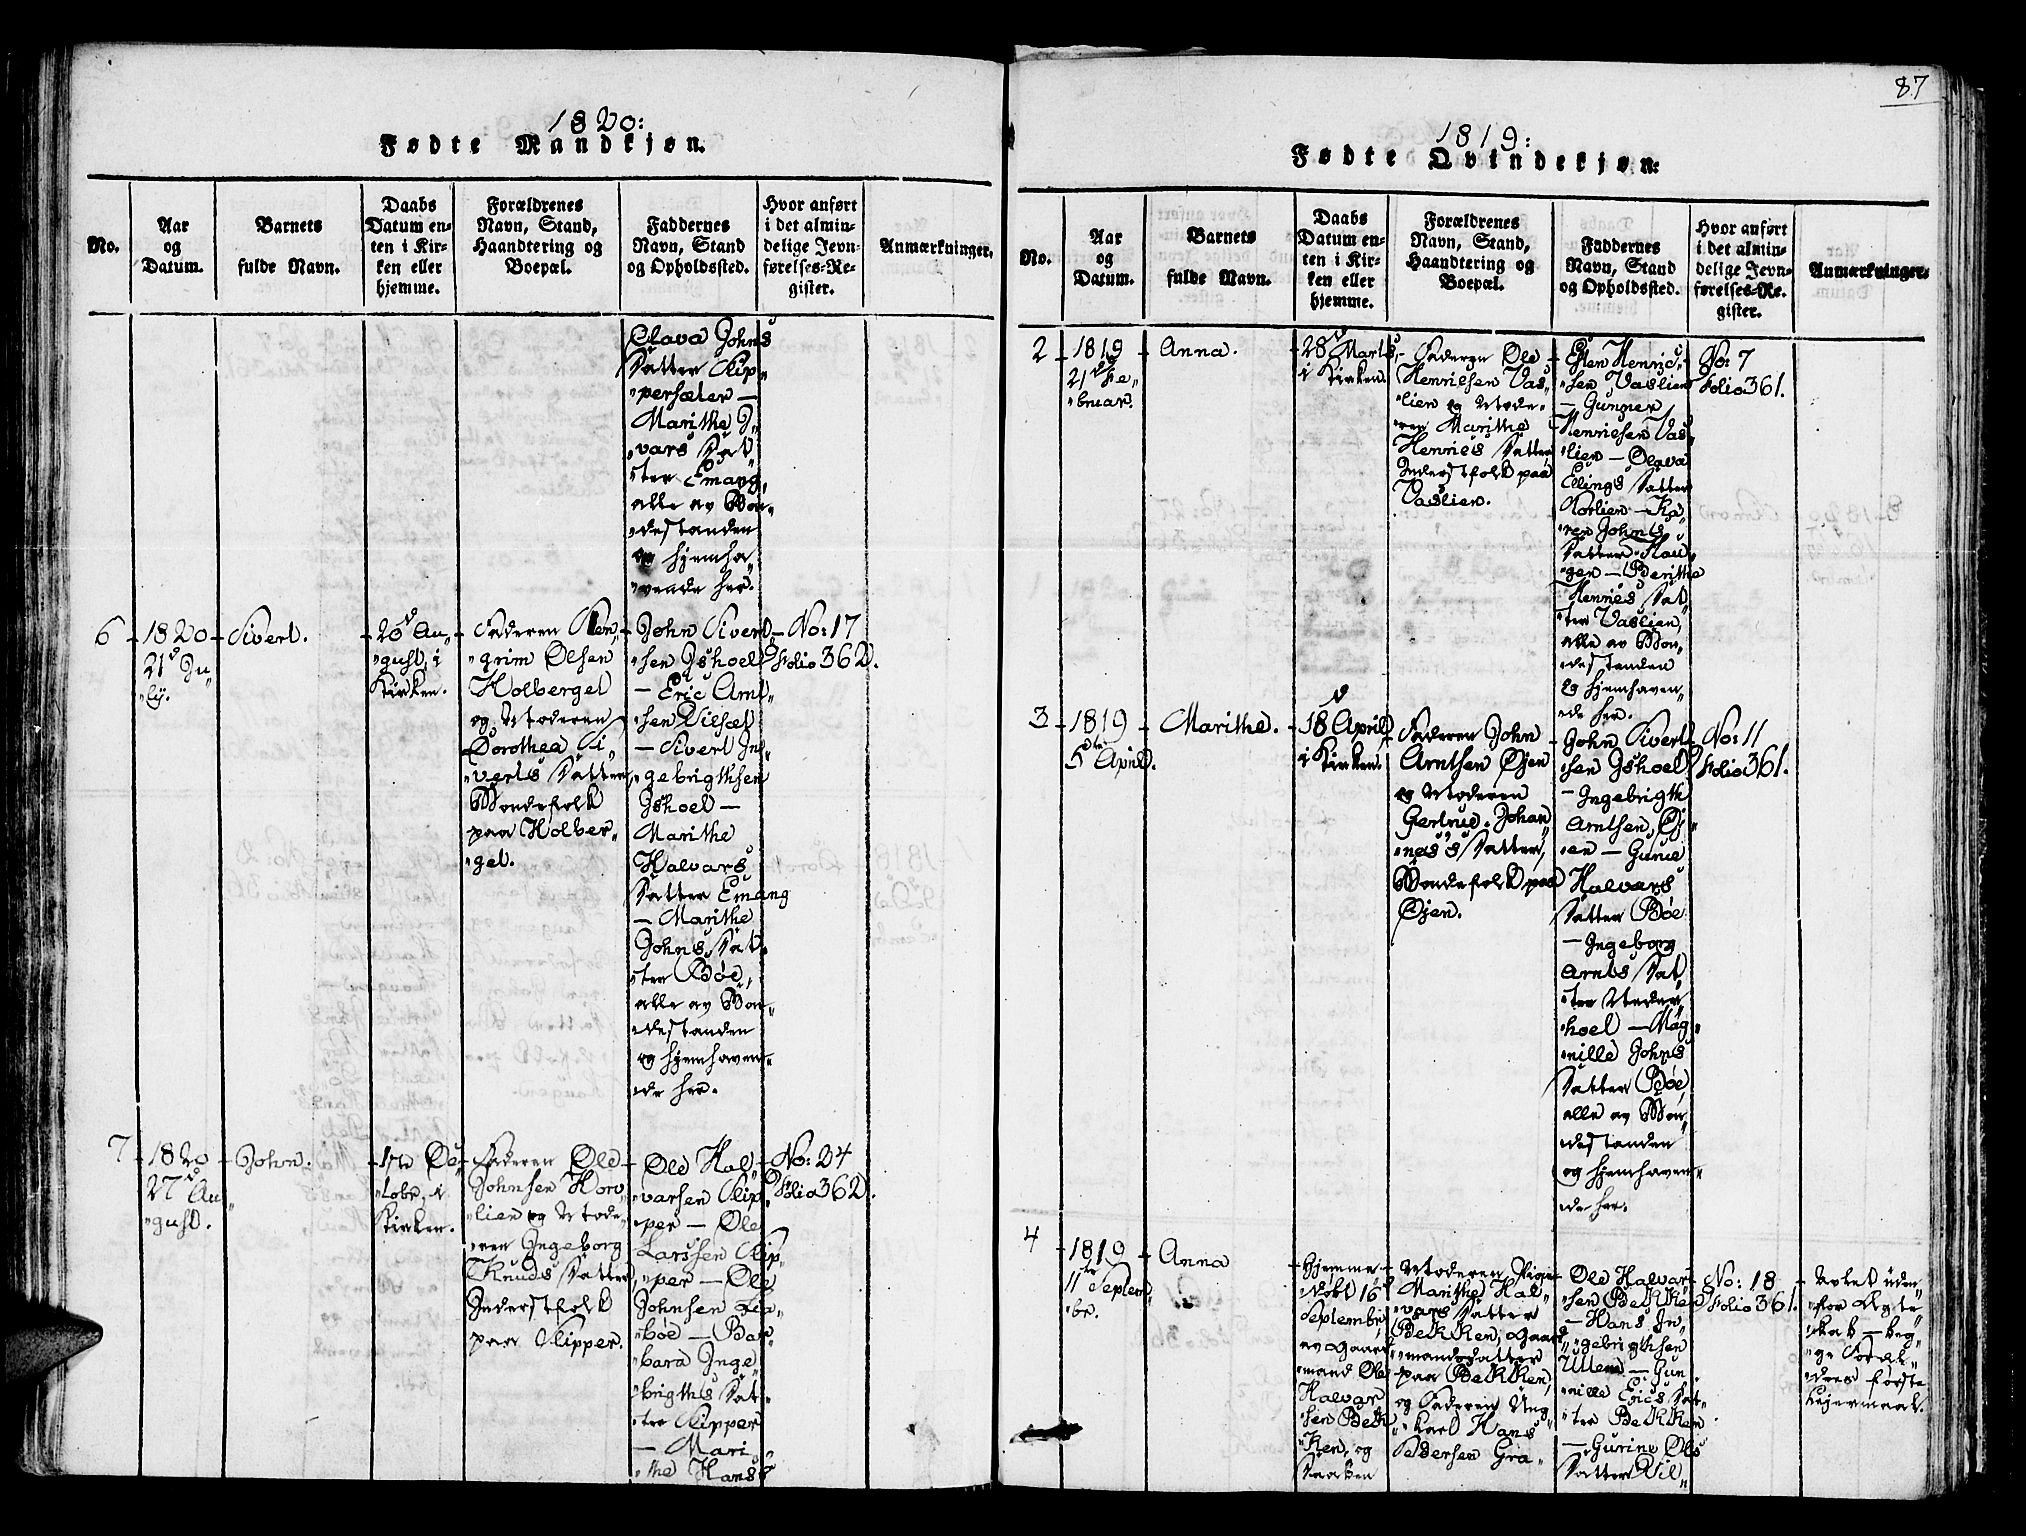 1820:
Fødte Mandkjøn.
No.
Aar
og
Datum.
Barnets
fulde Navn.
Daabs
Datum en-
ten i Kir-
ken eller
hjemme.
Forældrenes
Navn, Stand,
Haandtering og
Boepæl.
Faddernes
Navn, Stand
og Opholdssted.
Hvor anført
i det almin-
delige Jevn-
førelses-Re-
gister.
Anmærkninger.
Olava Johns
Datter Klip„
„persæter —
Marithe I„
„vars Dat„
„ter Emang,
alle av Bon„
„destanden
og hjemha„
„vende her.
6
1820
21d Ju„
„ly.
Sivert.
20d Au„
„gust, i
Kirken.
Faderen
„grim Olsen
Holberget
og Moderen
Dorothea Si„
„verts Datter,
Bondefolk
paa Holber„
„get.
John Sivert„
„sen Ishoel
— Eric Arnt„
„sen Vilsæt
— Sivert In„
„gebrigthsen
Ishoel —
Marithe
Halvars
Datter Emang
— Marithe
Johns Dat„
„ter Böe,
alle av Bon„
„destanden
og hjemhaven„
„de her.
No: 17
Folio 362.
7
1820
27d Au„
„gust.
John.
1ste Oc„
„tobr, i
Kirken.
Faderen Ole
Johnsen Hov„
„lien og Mode„
„ren Ingeborg
Knuds Datter,
Inderstfolk
paa Klipper.
Ole Hal„
„varsen Klip„
„per — Ole
Larssen Klip„
„per — Ole
Johnsen
„böe — Bar„
„bara Inge„
„brigths Dat„
„ter Klipper
— Mari„
„the Hans
No: 24
Folio 362.
87
1819:
Fødte Qvindekjøn:
No.
Aar
og
Datum.
Barnets
fulde Navn.
Daabs
Datum en-
ten i Kir-
ken eller
hjemme.
Forældrenes
Navn, Stand,
Haandtering og
Boepæl.
Faddernes
Navn, Stand
og Opholdssted.
Hvor anført
i det almin-
delige Jevn-
førelses-Re-
gister.
Anmærkninger.
2
1819
21d Fe„
„bruar.
Anna.
28d Marts,
i Kirken.
Faderen Ole
Henricsen Vas„
„lien og Mode„
„ren Marithe
Henrics Datter
Inderstfolk paa
Vaslien.
Esten Henric„
„sen Vaslien
— Gunner
Henricsen Vas„
„lien — Olava
Ellings Datter
Norlien — Ka„
„ren Johns
Datter Hau„
„gen — Berithe
Henrics Dat„
„ter Vaslien,
alle av Bon„
„destanden
og hjemhaven„
„de her.
No: 7
Folio 361.
3
1819
5te April.
Marithe.
18d April,
i Kirken.
Faderen John
Arntsen Öyen
og Moderen
Gertrud Johan„
„nes's Datter,
Bondefolk paa
Öyen.
John Sivert„
„sen Ishoel
— Ingebrigth
Arntsen Öy„
„en — Gunild
Halvars
Datter Böe
— Ingeborg
Arnts Dat„
„ter Meder„
„hoel — Mag„
„nille Johns
Datter Böe,
alle av Bon„
„destanden
og hjemhaven„
„de her.
No: 11
Folio 361.
4
1819
11te Septem„
„br.
Anna
Hjemme„
„døbt 16d
Septembr,
av Gaard„
„mand Ole
Halvar„
„sen Bek„
„ken, og
Moderen Pige
Marithe Hal„
„vars Datter
Bekken, Gaard„
„mandsdatter
paa Bekken,
og Faderen Ung„
„karl Hans
Pedersen Gra„
Ole Halvar„
„sen Bekken
— Hans In„
„gebrigthsen
Ulem — Gun„
„nille Erics Dat„
„ter Bekken
— Gurine Ols
Datter Vil„
No: 18
Folio 361.
Avlet uden„
„for Ægte„
„skab — beg„
„ge Foræl„
„dres første
Leiermaal.